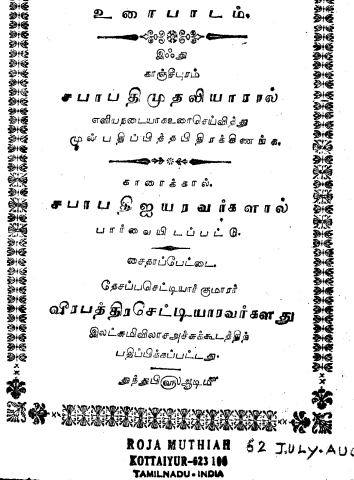 உரைபாடம்.
இஃது
காஞ்சீபுரம்
சபாபதிமுதலியாரால்
எளியநடையாகஉரைசெய்வித்து
முன்பதிப்பித்தபிரதிக்கிணங்க.
காரைக்கால்.
சபாபதிஐயரவர்களால்
பார்வையிடப்பட்டு.
சைதாப்பேட்டை.
தேசப்பசெட்டியார் குமாரர்
வீரபத்திரசெட்டியாரவர்களது
இலட்சுமிவிலாசஅச்சுக்கூடத்திற்
பதிப்பிக்கப்பட்டது.
ROJA MUTHIAH
KOTTAIYUR-623 106
TAMILNADU-INDIA
62 JULY-AUG